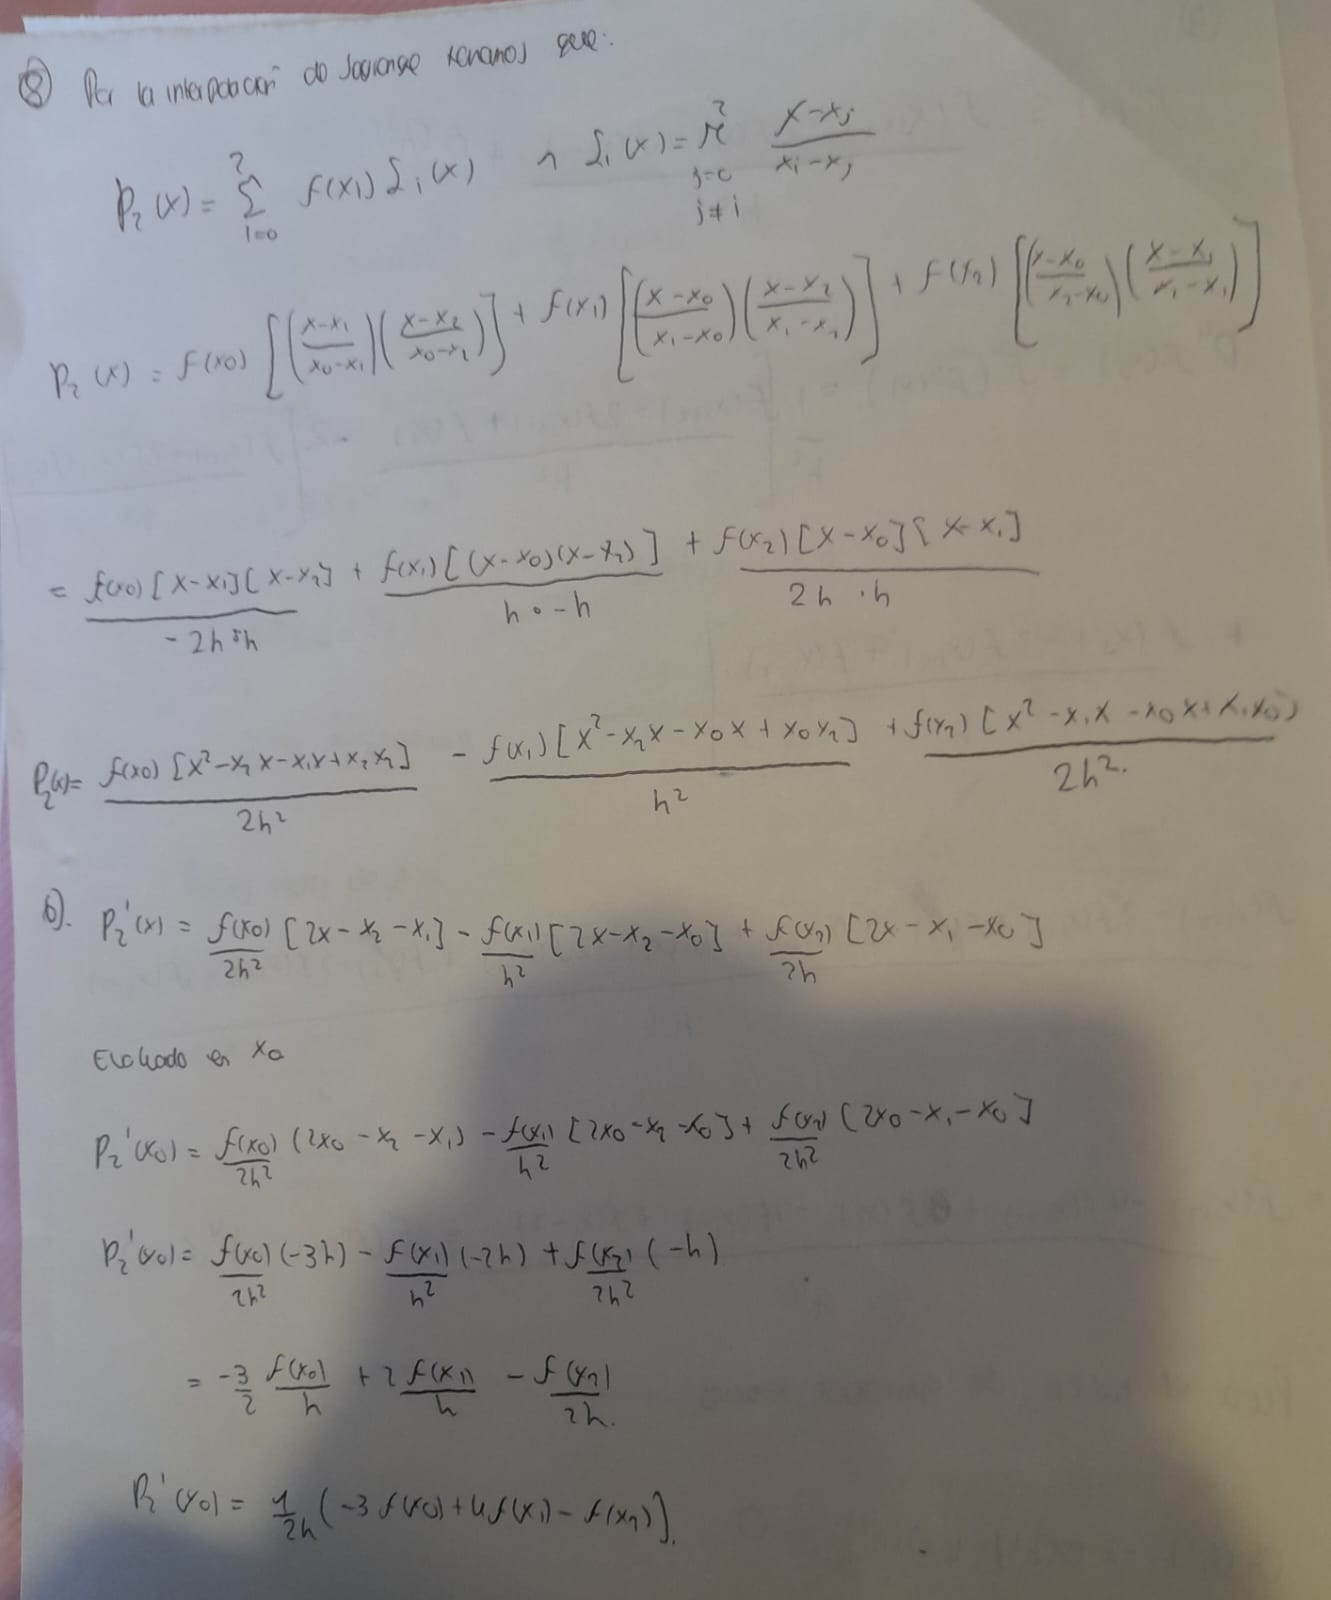 ⑧ Por la interpolación de Lagrange tenemos que:
P₂(x) = Σ_{i=0}^{2} f(xᵢ) Lᵢ(x) ∧ Lᵢ(x) = π_{j=0, j≠i}^{2} (x-xⱼ)/(xᵢ-xⱼ)
P₂(x) = f(x₀) [((x-x₁)/(x₀-x₁)) ((x-x₂)/(x₀-x₂))] + f(x₁) [((x-x₀)/(x₁-x₀)) ((x-x₂)/(x₁-x₂))] + f(x₂) [((x-x₀)/(x₂-x₀)) ((x-x₁)/(x₁-x₁))]
= f(x₀)[x-x₁][x-x₂]/(-2h·h) + f(x₁)[(x-x₀)(x-x₂)]/(h·-h) + f(x₂)[x-x₀][x-x₁]/(2h·h)
P₂(x) = f(x₀)[x²-x₂x-x₁x+x₂x₂]/(2h²) - f(x₁)[x²-x₂x-x₀x+x₀x₂]/(h²) + f(x₂)[x²-x₁x-x₀x+x₁x₀)/(2h²).
b). P₂'(x) = f(x₀)/(2h²) [2x-x₂-x₁] - f(x₁)/(h²) [2x-x₂-x₀] + f(x₂)/(2h) [2x-x₁-x₀]
Evaluado en x₀
P₂'(x₀) = f(x₀)/(2h²) (2x₀-x₂-x₁) - f(x₁)/(h²) [2x₀-x₂-x₀] + f(x₂)/(2h²) [2x₀-x₁-x₀]
P₂'(x₀) = f(x₀)/(2h²) (-3h) - f(x₁)/(h²) (-2h) + f(x₂)/(2h²) (-h)
= -3/2 f(x₀)/h + 2 f(x₁)/h - f(x₂)/(2h).
P₂'(x₀) = 1/(2h) (-3f(x₀)+4f(x₁)-f(x₂)].